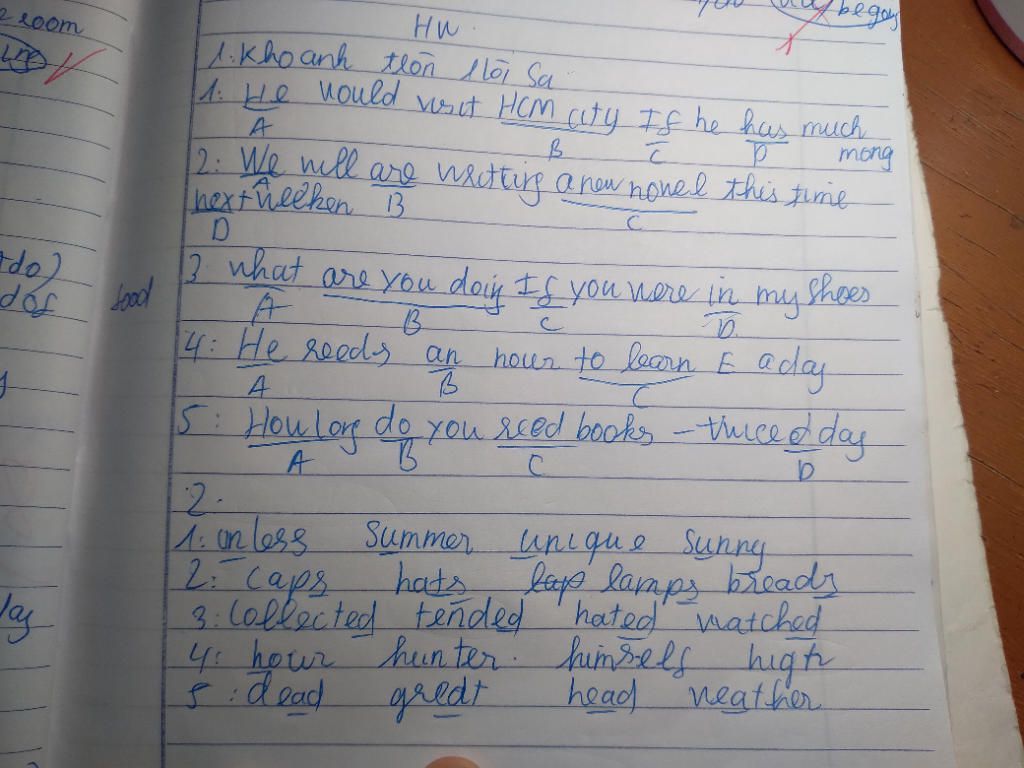 e room
begay
1
HW.
1. Khoanh tròn lỗi Sai
1: He would visit HCM city If he has much
A B C D mong
2: We will are writting a new novel this time
A B C
next weeken
D
3 what are you doiy If you were in my shoes
A B C D
4: He reeds an hour to learn E a day
A B C
5: How long do you reed books – twice a day
A B C D
2.
1: unless summer unique sunny
2: caps hats lap lamps breads
3: collected tended hated watched
4: hour hunter. himself high
5: dead great head weather
do)
does
food